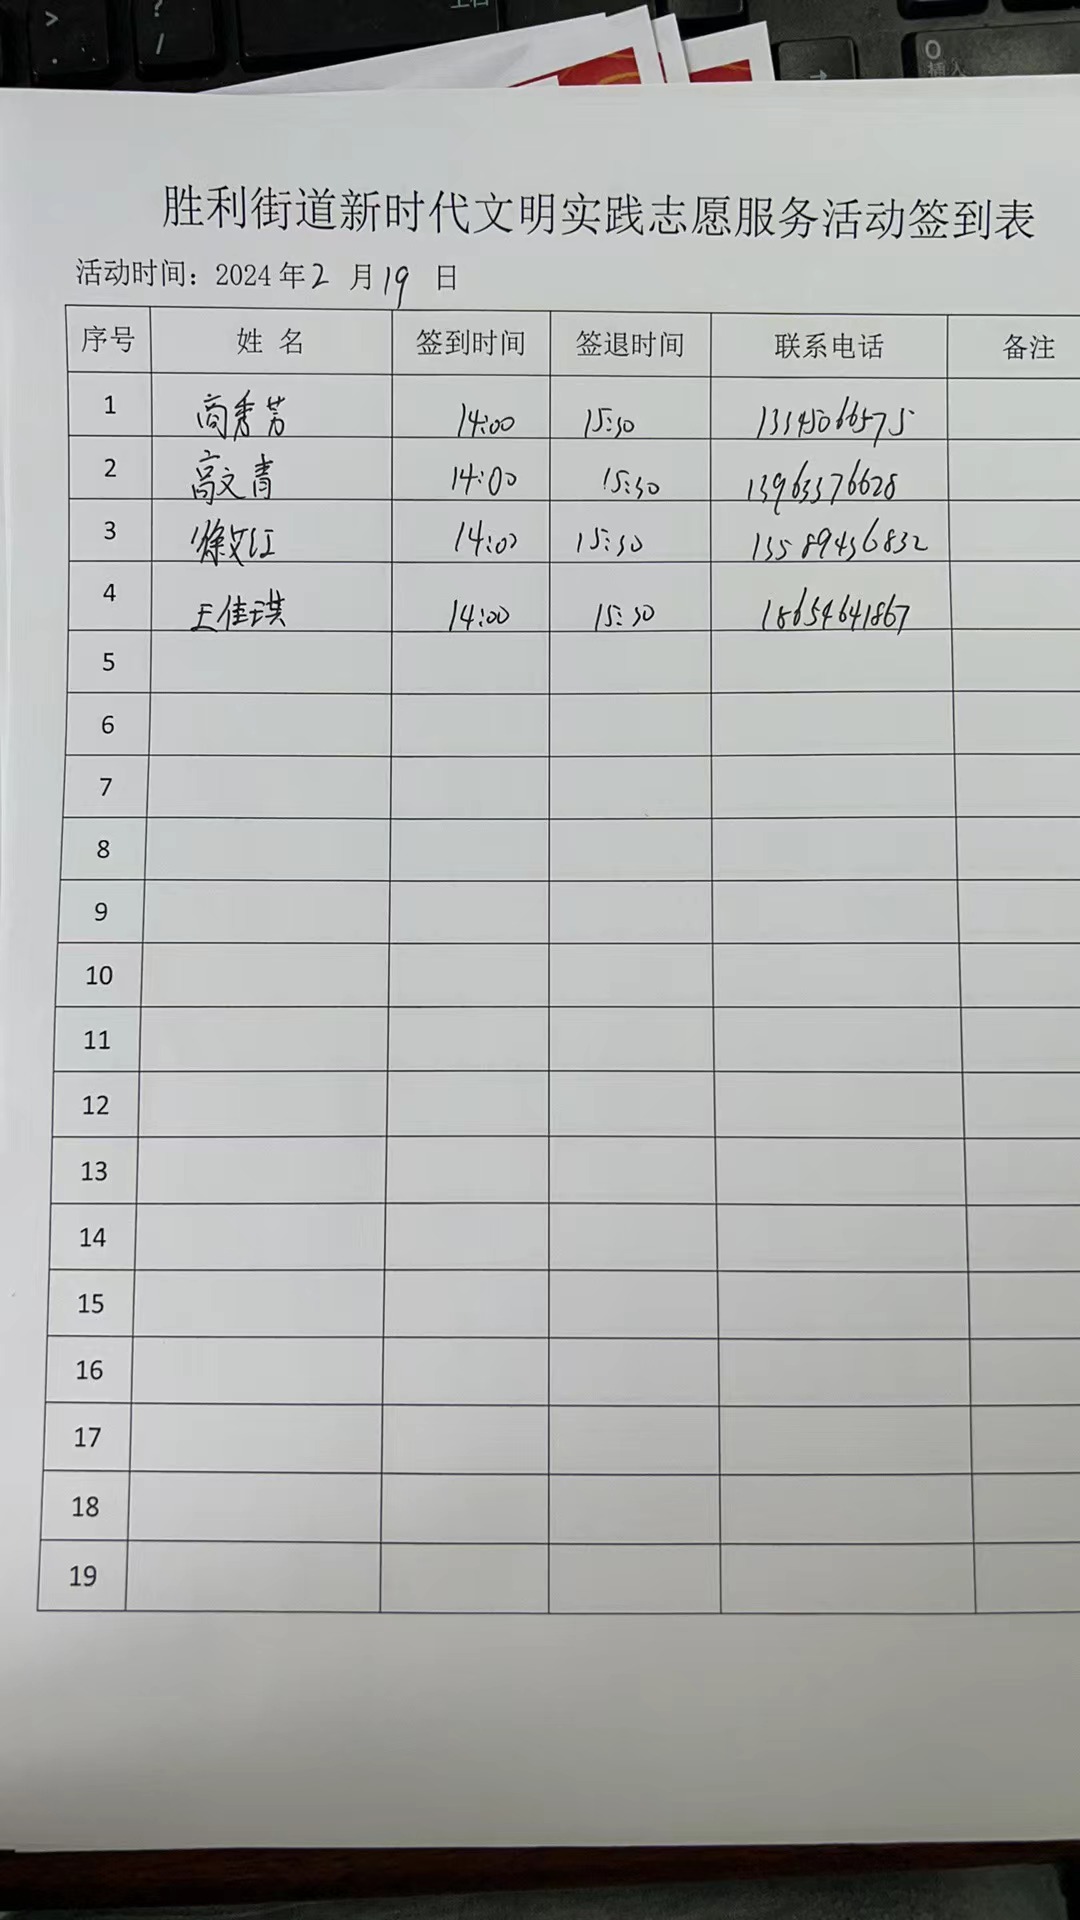 胜利街道新时代文明实践志愿服务活动签到表
活动时间：2024年2月19日
序号 姓 名 签到时间 签退时间 联系电话 备注
1 商秀芳 14:00 15:30 13345066575
2 高文青 14:00 15:30 13963376628
3 徐文红 14:00 15:30 13589436832
4 王佳琪 14:00 15:30 18654641867
5
6
7
8
9
10
11
12
13
14
15
16
17
18
19